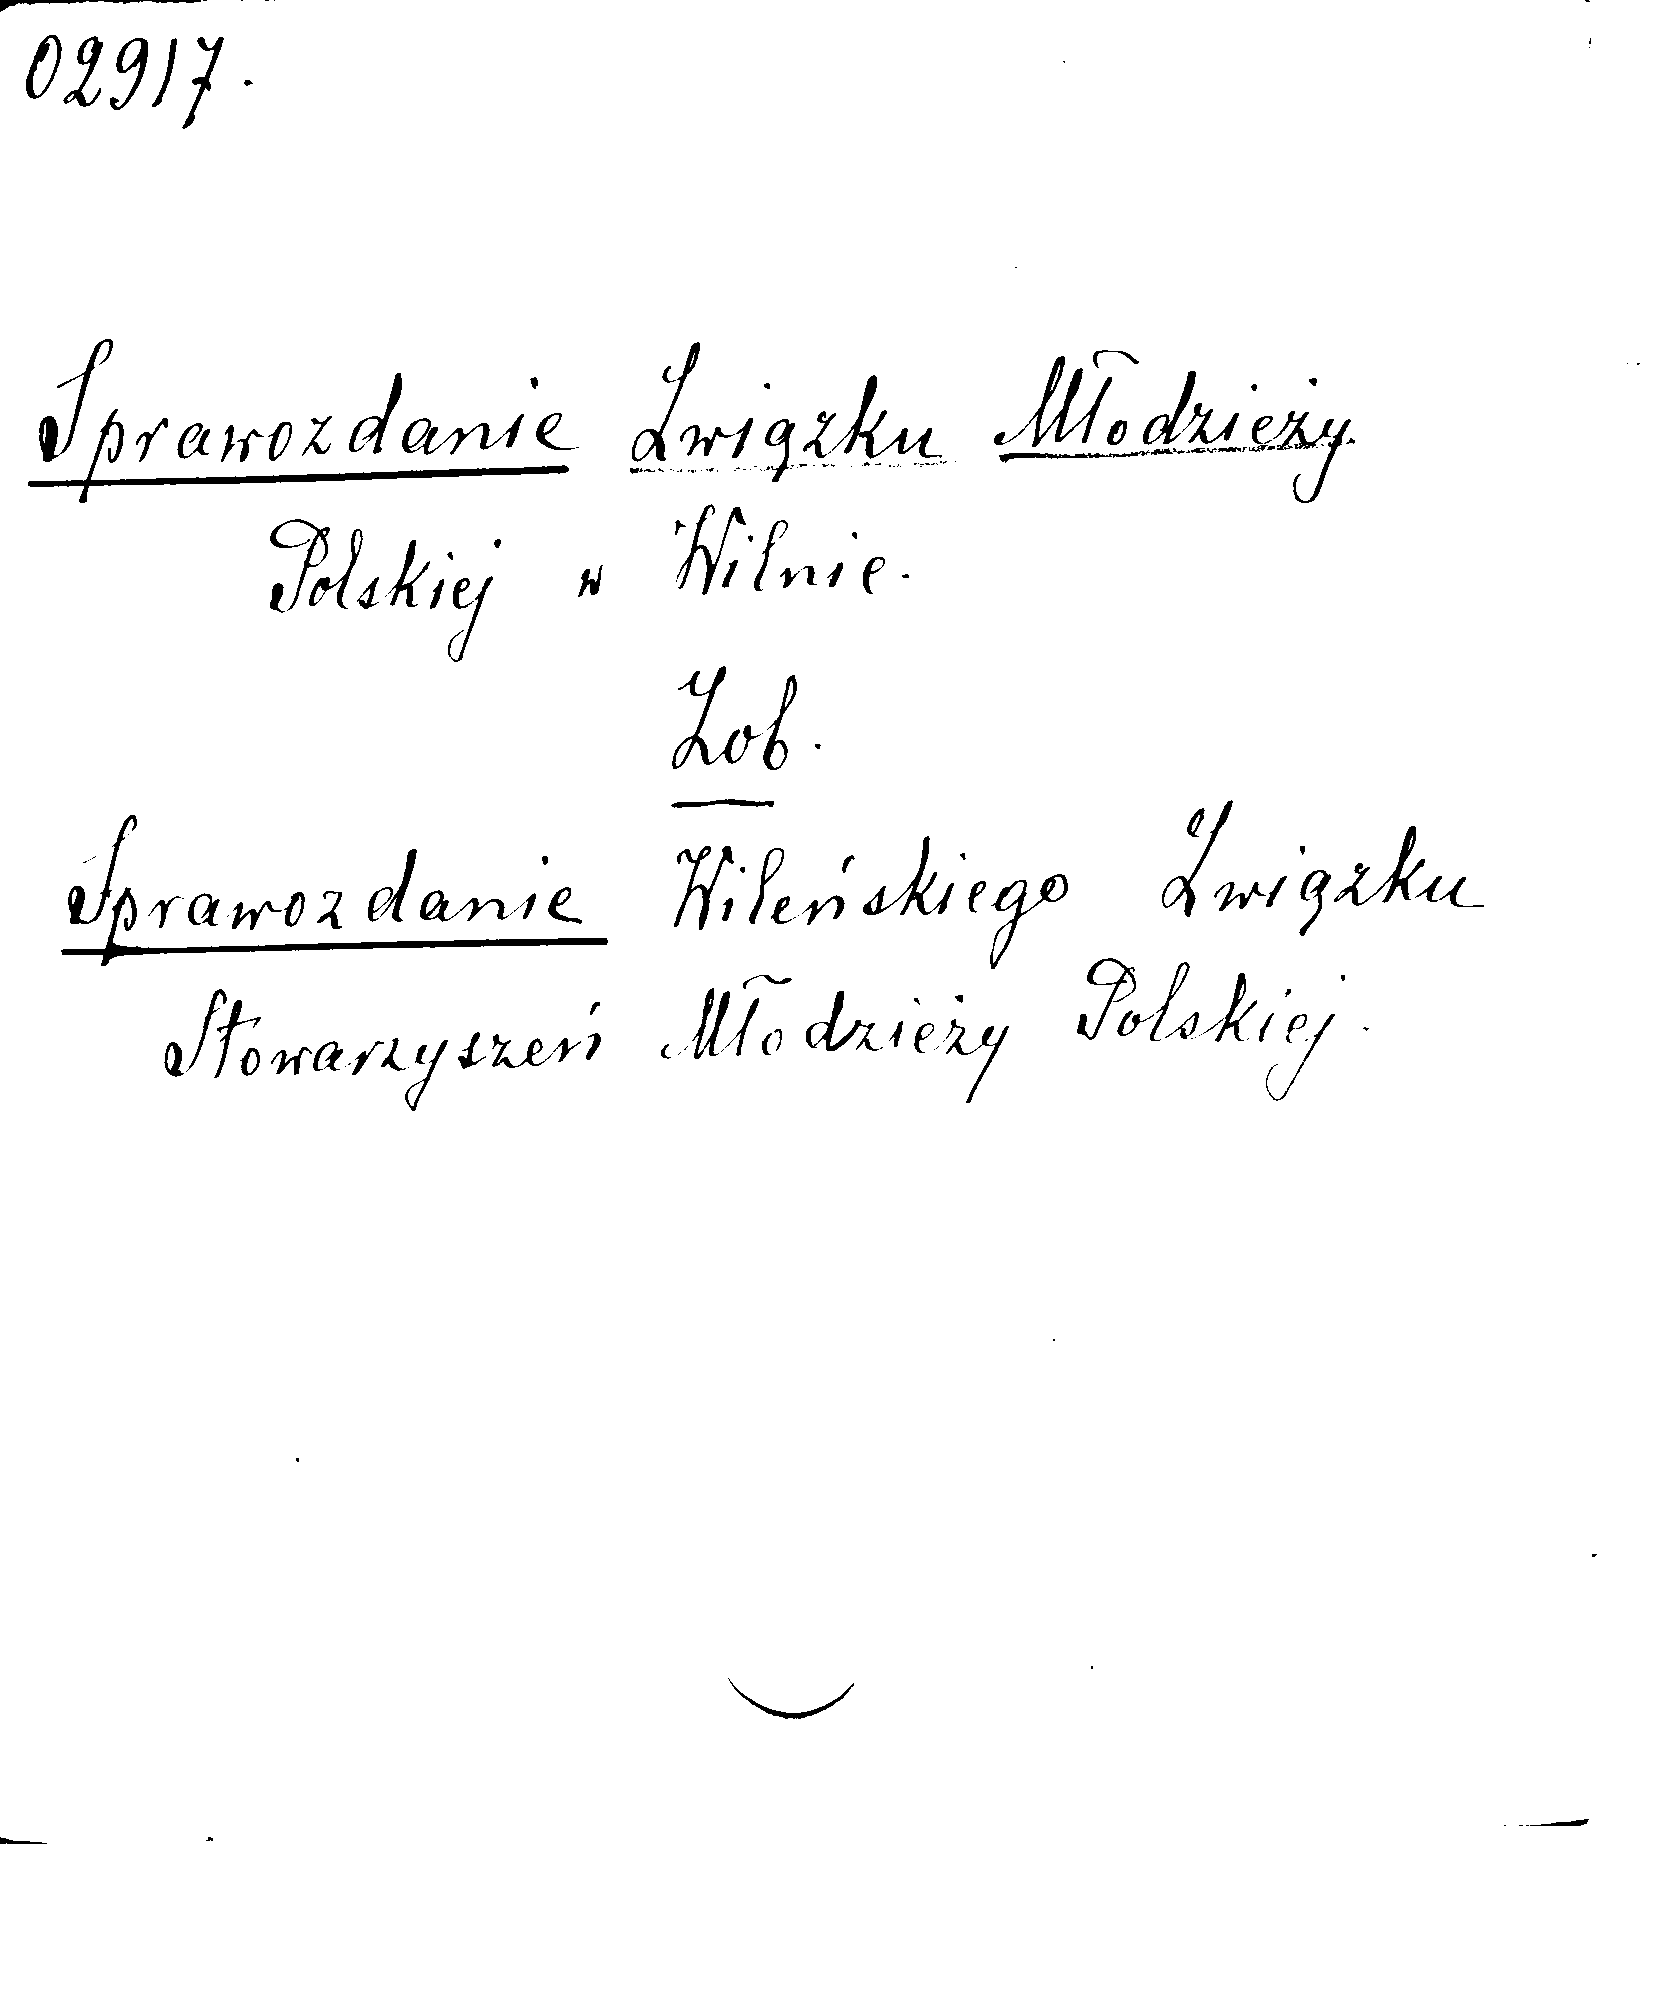 02917.
Sprawozdanie Związku Młodzieży
Polskiej w Wilnie.
Zob.
Sprawozdanie Wileńskiego Związku
Stowarzyszeń Młodzieży Polskiej.